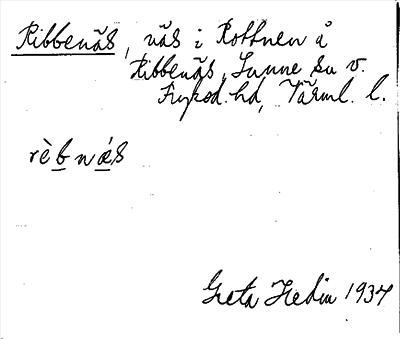 Ribbenäs, näs i Rottnen å
Ribbenäs, Sunne sn v.
Fryksd. hd, Värml. l.
rèbnǽs
Greta Hedin 1937